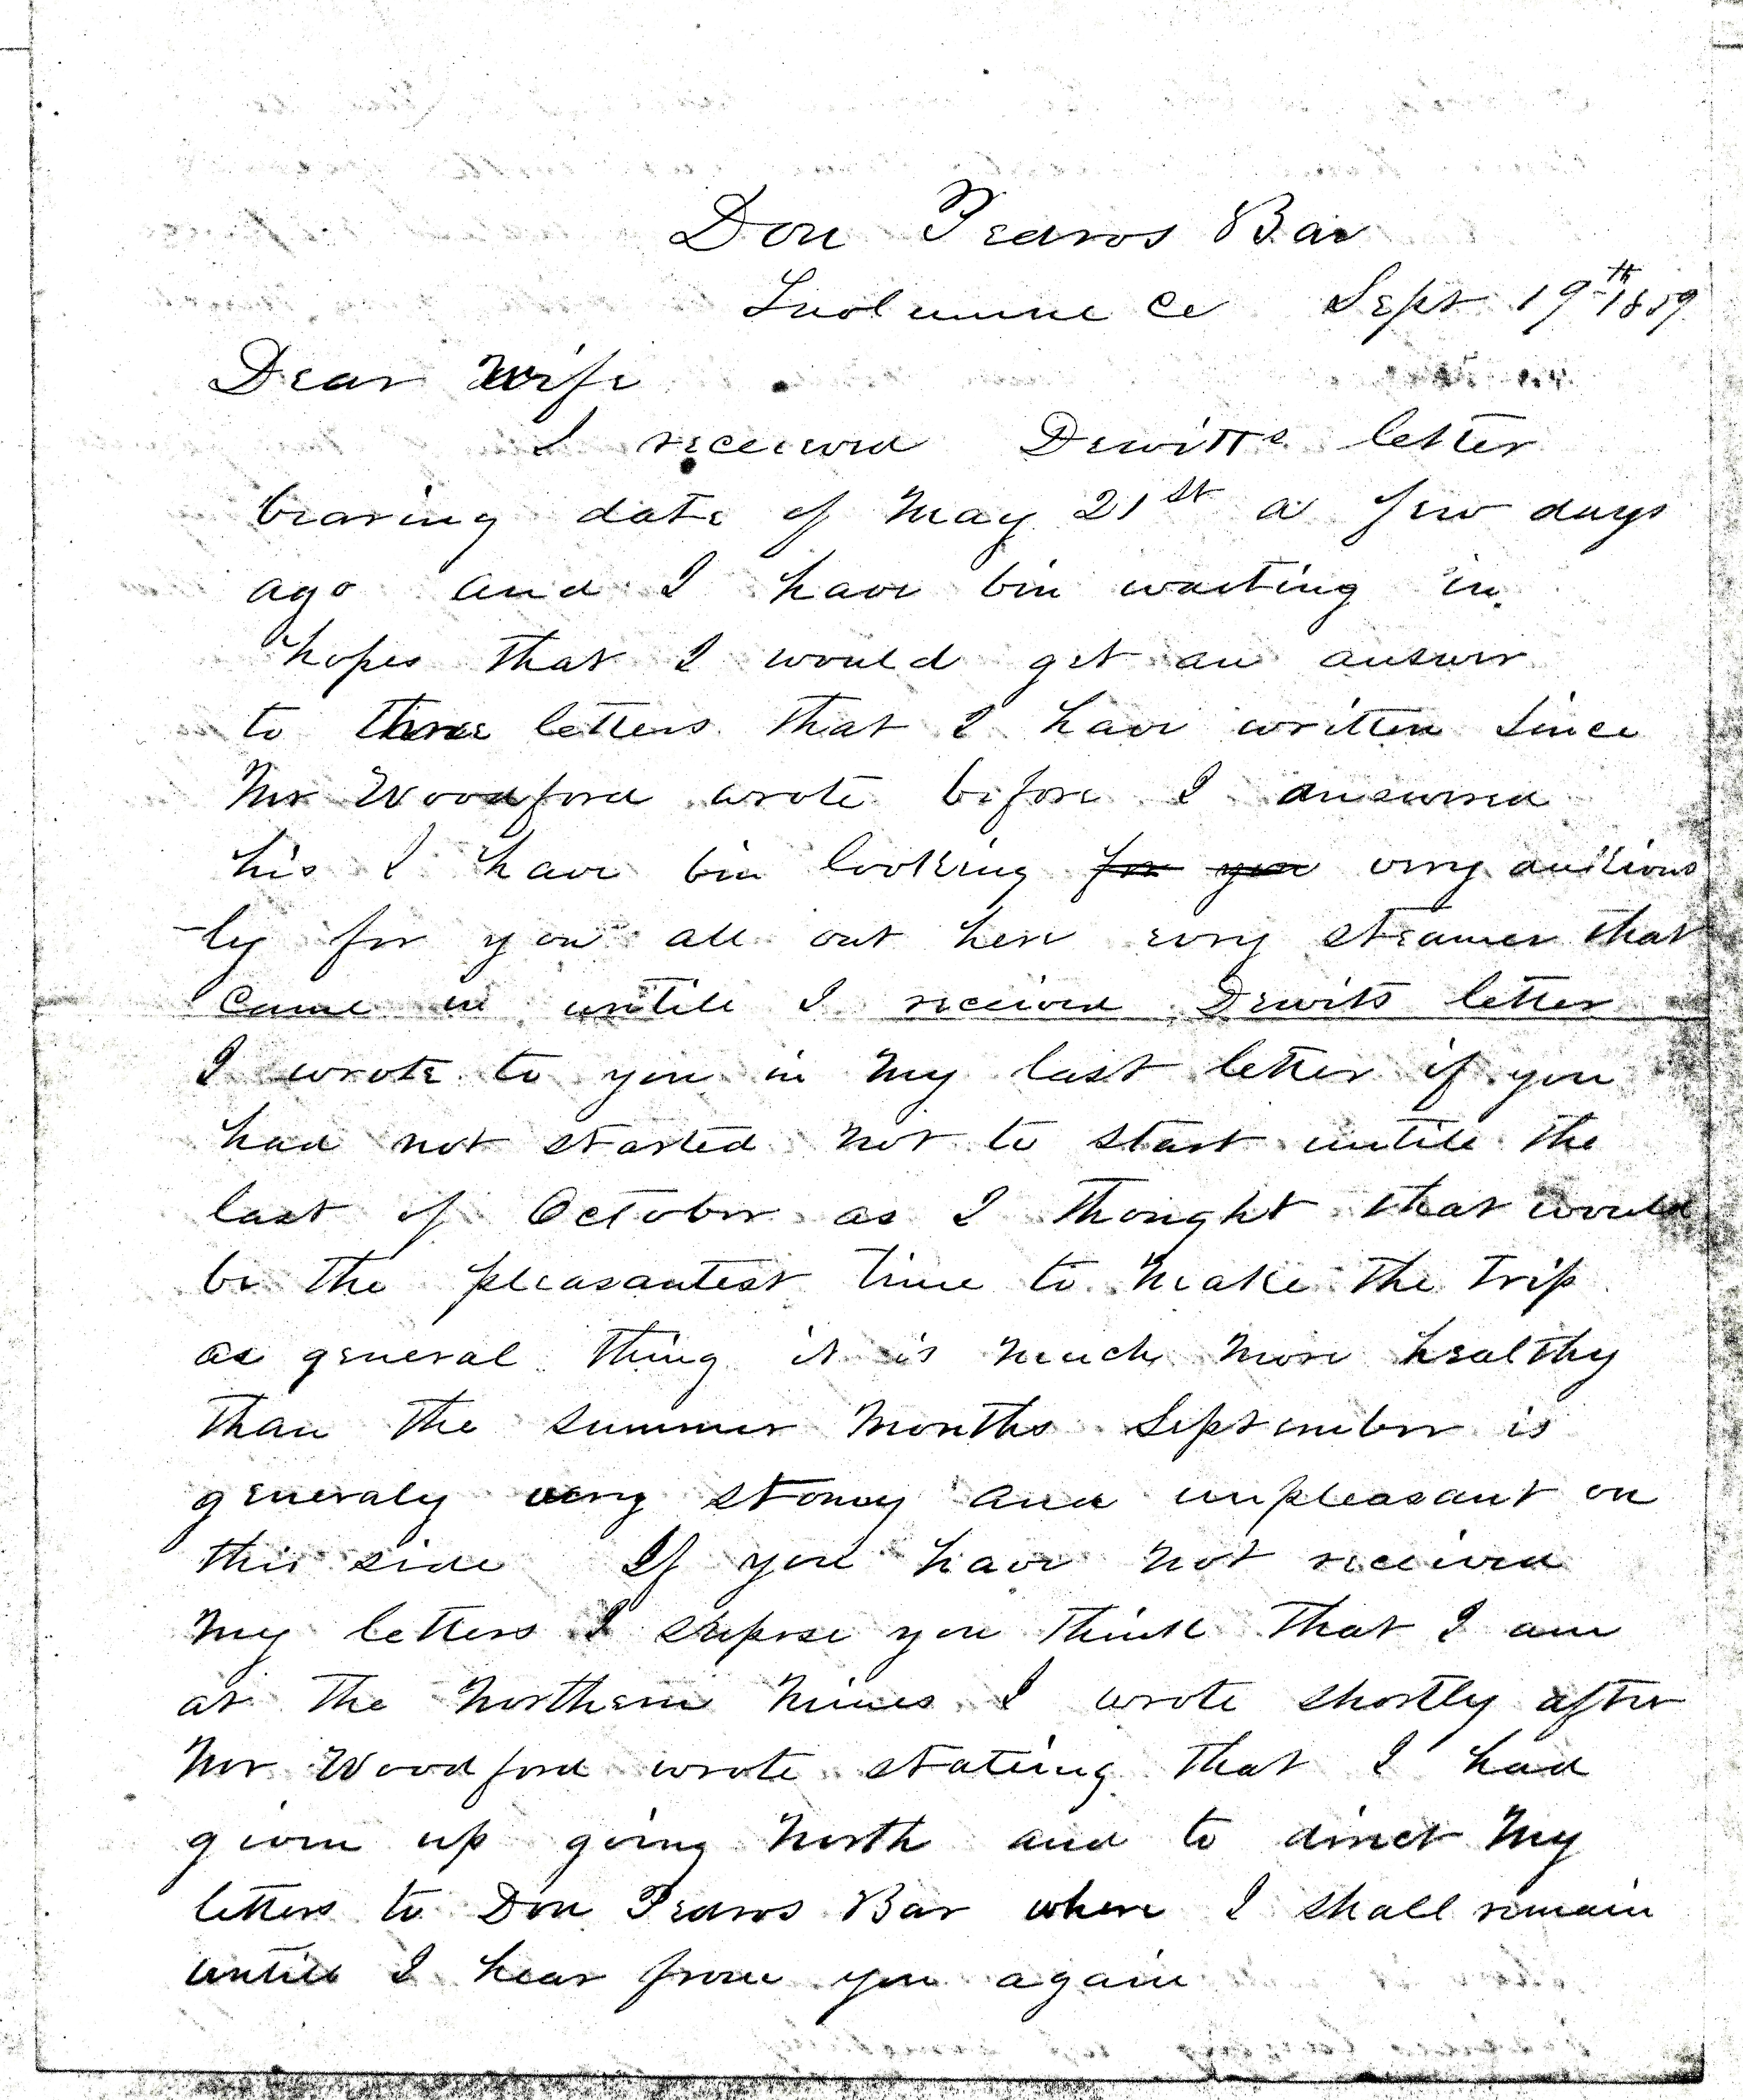 Don Pedros Bar
Tuolumne Co Sept 19th 1859
Dear Wife
I received Dewitts letter
bearing date of May 21st a few days
ago and I have bin waiting in
hopes that I would get an answer
to three letters that I have written since
Mr Woodford wrote before I answered
his I have bin looking for you very anxious
-ly for you all out here every steamer that
came in untill I received Dewits letter
I wrote to you in my last letter if you
had not started not to start untill the
last of October as I thought that would
be the pleasantest time to make the trip
as general thing it is much more healthy
than the summer months September is
generaly very stormy and unpleasant on
this side If you have not received
my letters I supose you think that I am
at the Northern mines I wrote shortly after
Mr Woodford wrote stateing that I had
given up going North and to direct my
letters to Don Pedros Bar where I shall remain
untill I hear from you again